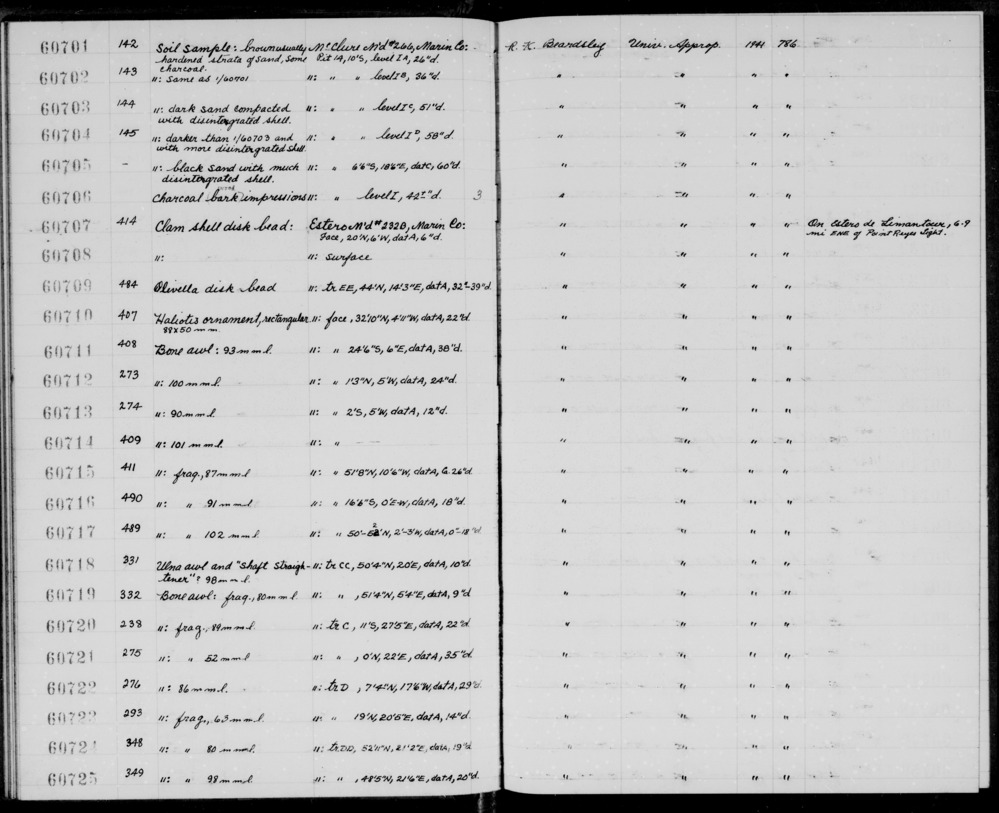 60701 142 Soil sample: brown usually McClure M'd #266, Marin Co: R. K. Beardsley Univ. Approp. 1941 786
hardened strata of sand, some Pit 14, 10'S, level IA, 26"d.
charcoal.
60702 143 ": Same as 1/60701 ": " " level IB, 36"d. " " " "
60703 144 ": dark sand compacted ": " " level IC, 51"d. " " " "
with disintergrated shell.
60704 145 ": darker than 1/60703 and ": " " level ID, 58"d. " " " "
with more disintergrated shell.
60705 - ": black sand with much ": " 6'6"S, 18'6"E, dat C, 60"d. " " " "
disintergrated shell.
60706 Charcoal bark impressions ": " level I, 42"d. 3 " " " "
60707 414 Clam shell disk bead: Estero M'd #232B, Marin Co: " " " " On Estero de Limantour, 6-9
Face, 20'N, 6'W, dat A, 6"d. mi ENE of Point Reyes Light.
60708 ": ": Surface " " " "
60709 484 Olivella disk bead ": tr EE, 44'N, 14'3"E, dat A, 32"-39"d. " " " "
60710 407 Haliotis ornament, rectangular ": face, 32'10"N, 4'11"W, dat A, 22"d. " " " "
88x50 mm.
60711 408 Bone awl: 93 mm l. ": " 24'6"S, 6"E, dat A, 38"d. " " " "
60712 273 ": 100 mm l. ": " 1'3"N, 5'W, dat A, 24"d. " " " "
60713 274 ": 90 mm l. ": " 2'S, 5'W, dat A, 12"d. " " " "
60714 409 ": 101 mm l. ": " — " " " "
60715 411 ": frag., 87 mm l ": " 51'8"N, 10'6"W, dat A, 26"d. " " " "
60716 490 ": " 91 mm l ": " 16'6"S, 0'E-W, dat A, 18"d. " " " "
60717 489 ": " 102 mm l. ": " 50'-52'N, 2'-3'W, dat A, 0"-18"d " " " "
60718 331 Ulna awl and "Shaft Straigh- ": tr CC, 50'4"N, 20'E, dat A, 10"d. " " " "
tener"? 98 mm l.
60719 332 Bone awl: frag., 80 mm l. ": " , 51'4"N, 5'4"E, dat A, 9"d " " " "
60720 238 ": frag., 89 mm l. ": tr C, 11'S, 27'5"E, dat A, 22"d. " " " "
60721 275 ": " 52 mm l ": " , 0'N, 22'E, dat A, 35"d. " " " "
60722 276 ": 86 mm l. ": tr D , 7'4"N, 17'6"W, dat A, 29"d. " " " "
60723 293 ": frag., 63 mm l. ": " 19'N, 20'5"E, dat A, 14"d. " " " "
60724 348 ": " 80 mm l. ": tr DD, 52'11"N, 21'2"E, dat A, 19"d. " " " "
60725 349 ": " 98 mm l ": " , 48'5"N, 21'6"E, dat A, 20"d. " " " "